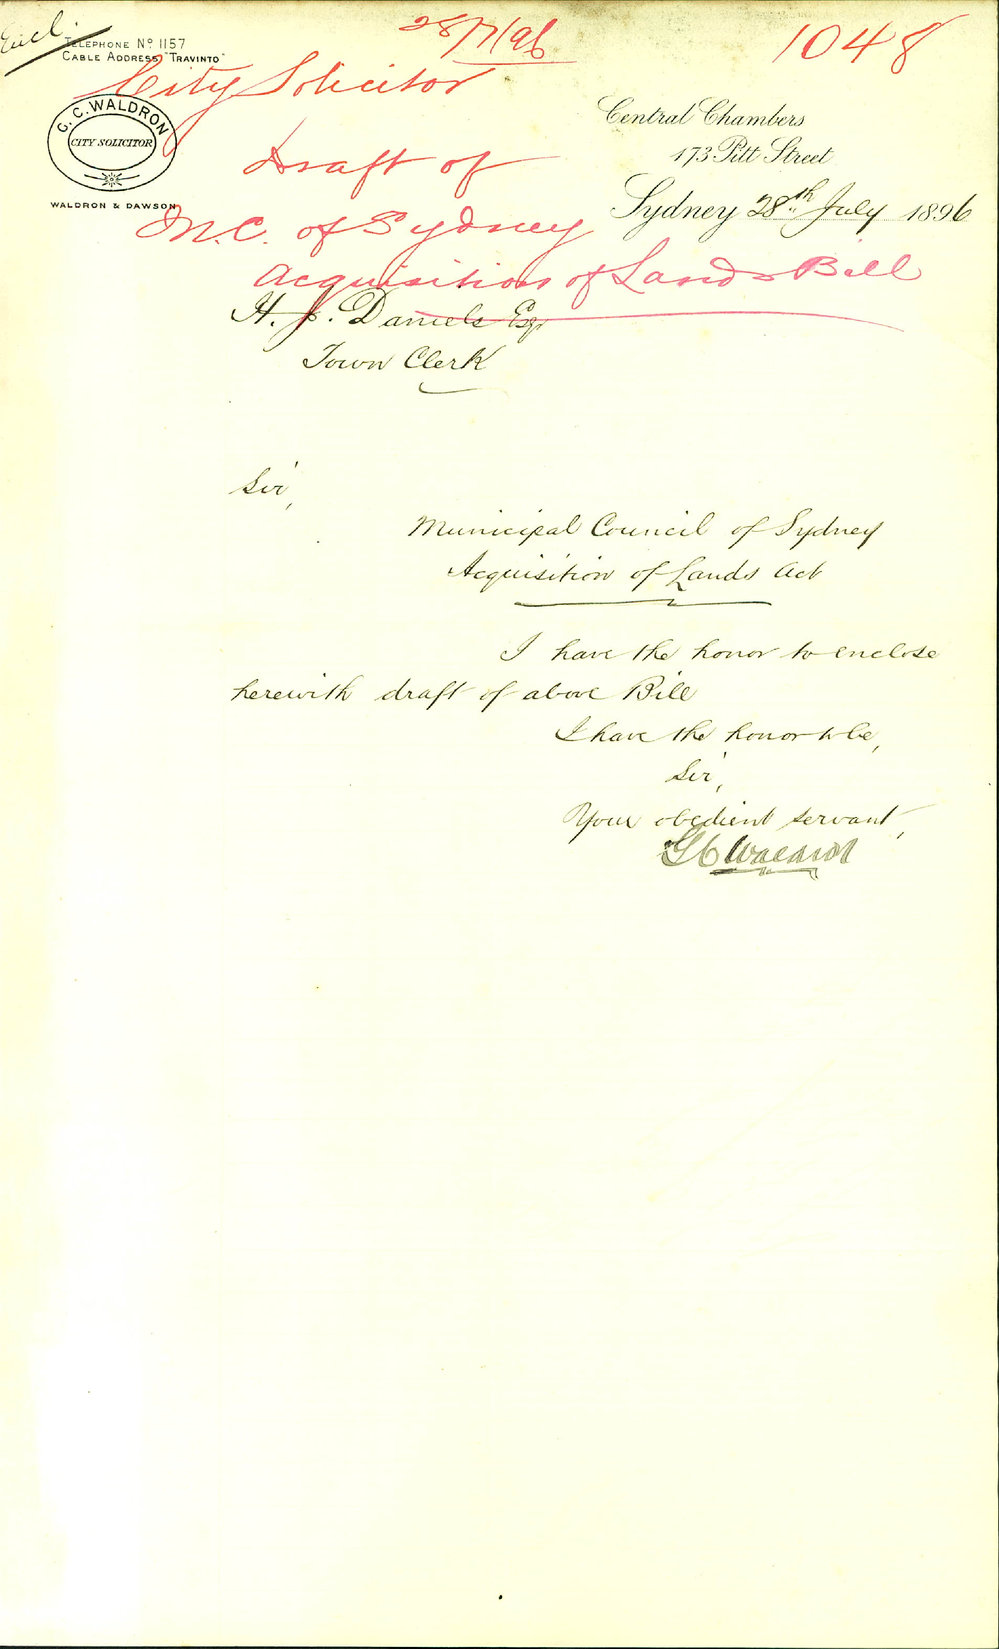 Encl
28/7/96
1048
TELEPHONE No 1157
CABLE ADDRESS "TRAVINTO"
City Solicitor
G. C. WALDRON
CITY SOLICITOR
WALDRON & DAWSON
Central Chambers
173 Pitt Street
Sydney 28th July 1896
Draft of
M.C. of Sydney
Acquisition of Lands Bill
H. J. Daniels Esqr
Town Clerk
Sir,
Municipal Council of Sydney
Acquisition of Lands Act
I have the honor to enclose
herewith draft of above Bill
I have the honor to be,
Sir,
Your obedient servant,
G C Waldron